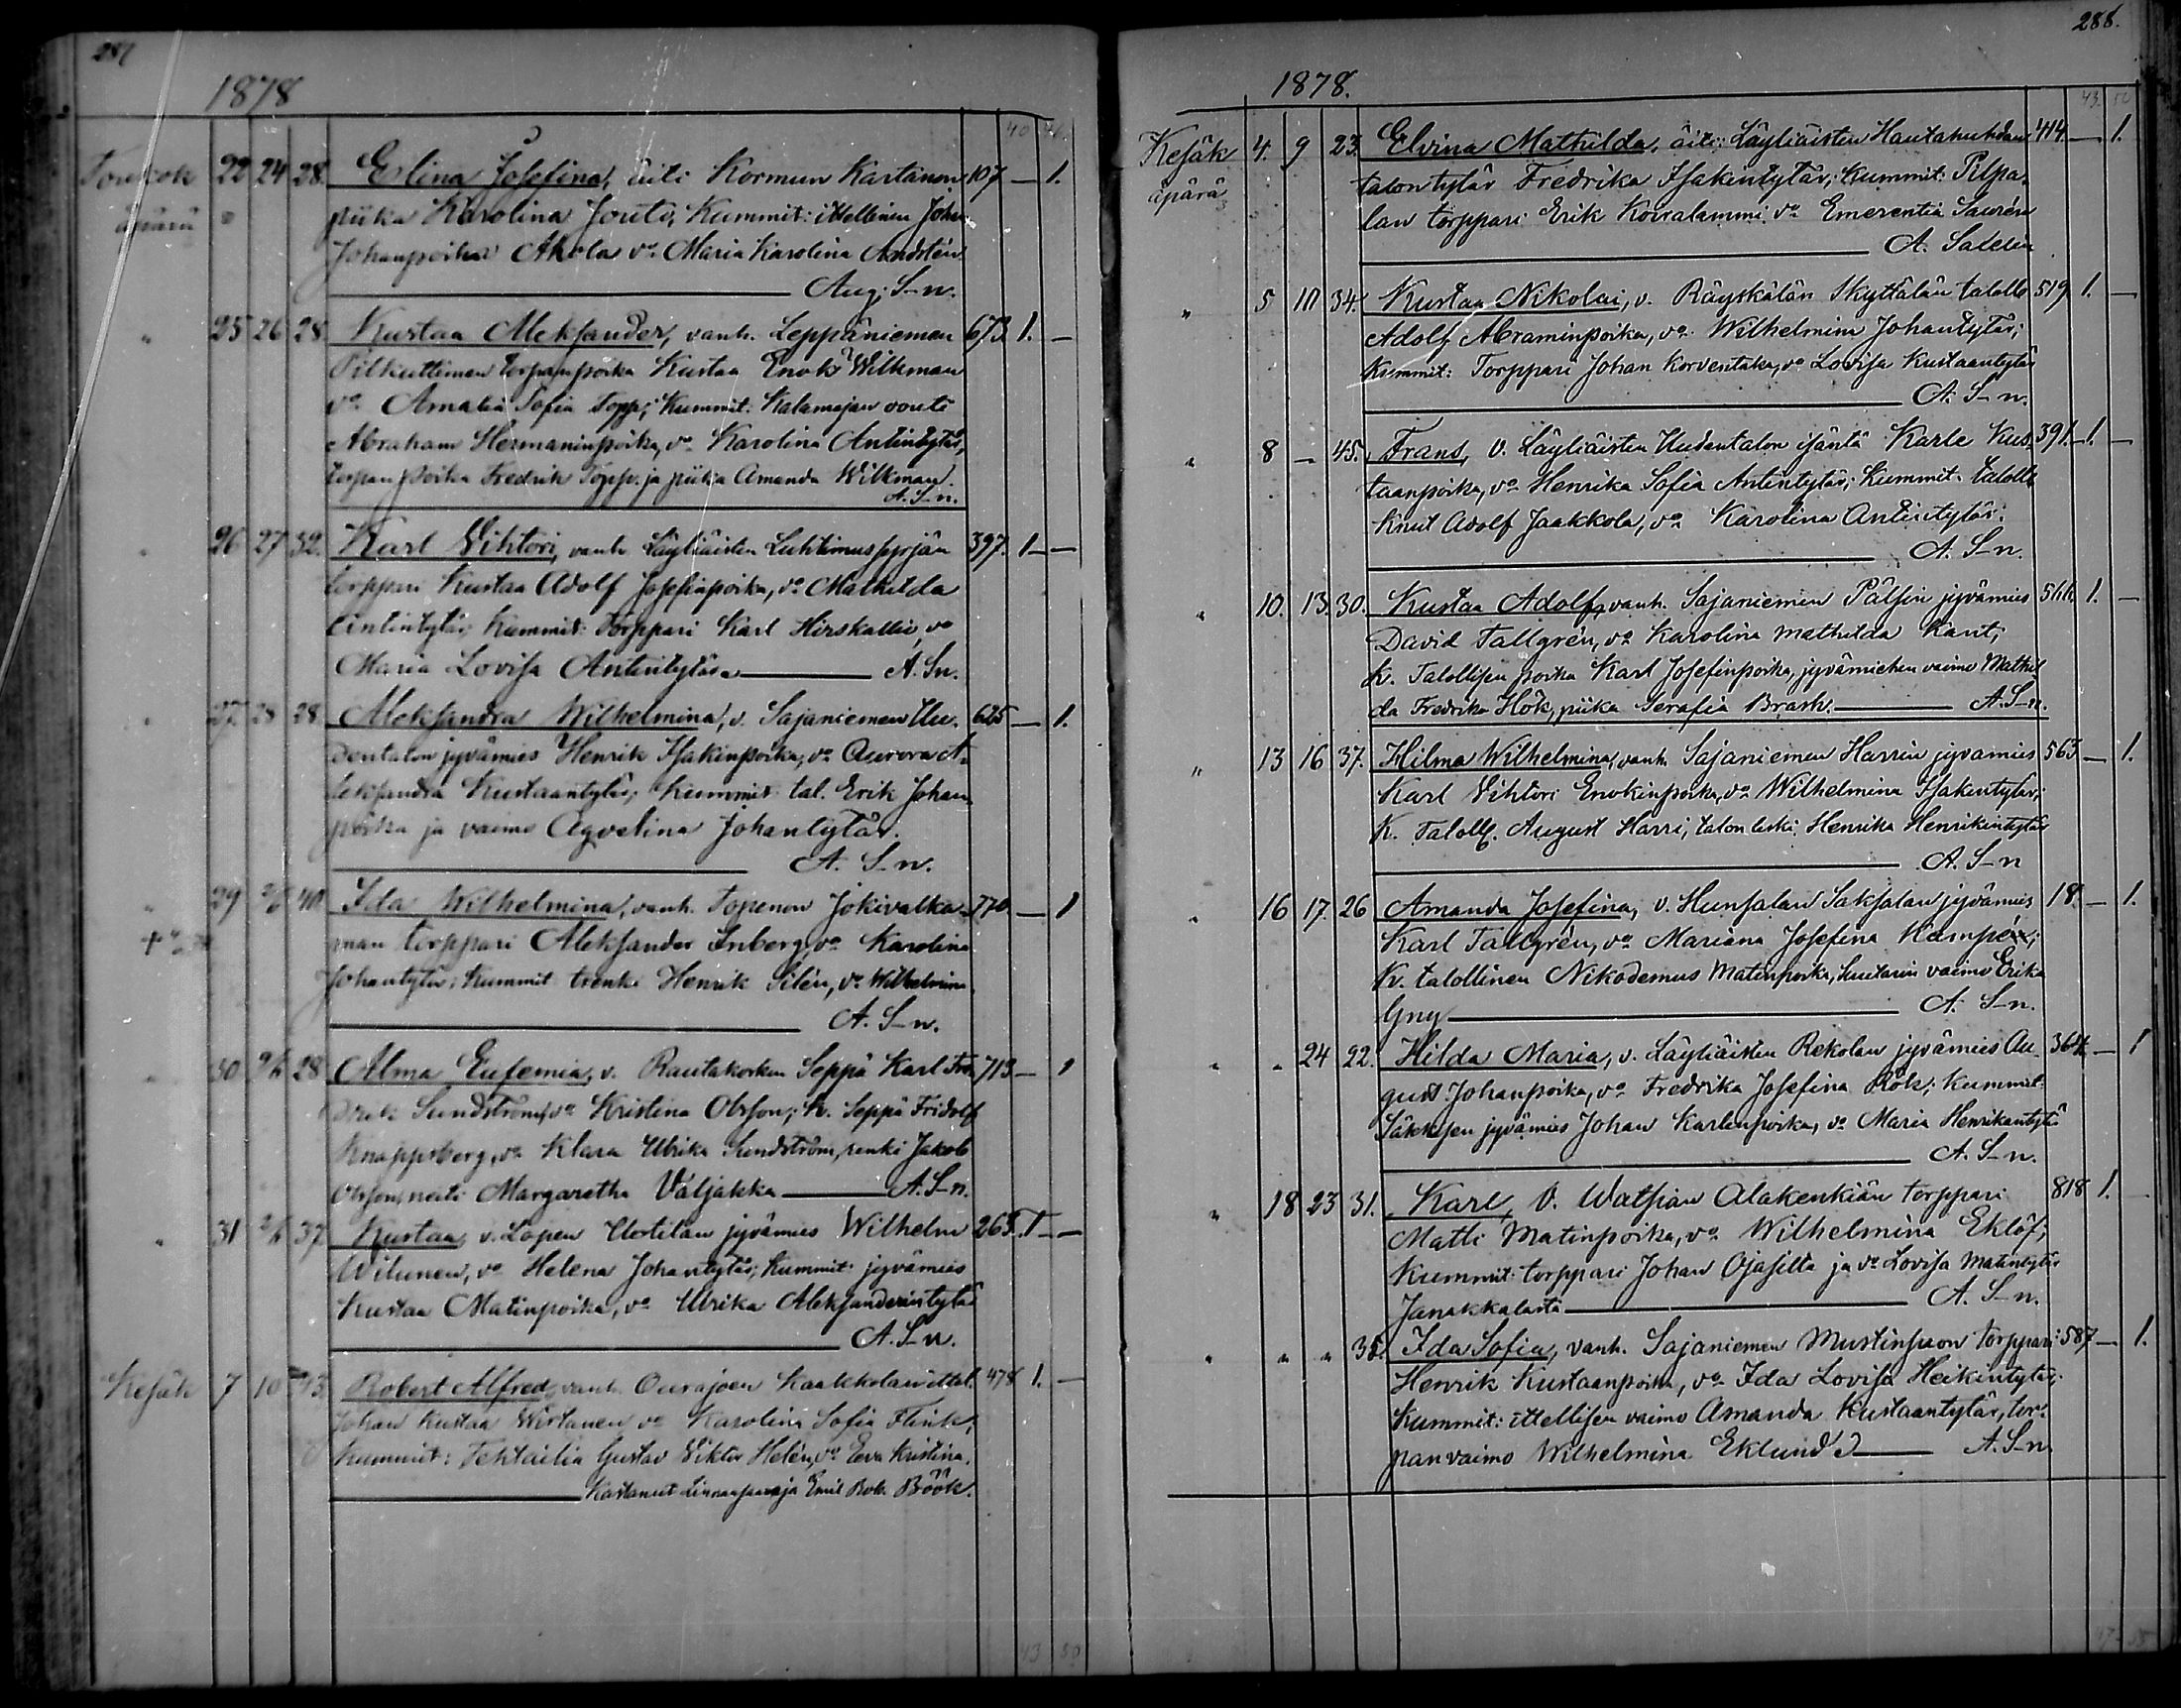 287
1878
40 46
Toukok 22 24 28. Elina Josefina, äiti Kormun Kartanon 107 — 1.
äpärä piika Karolina Jouti, Kummit: ittellinen Joh.
Johanpoika Ahola vo Maria Karolina Andstén
Aug. S-n.
" 25 26 28. Kustaa Aleksander, vanh. Leppäniemen 673. 1. —
torpanpoika Kustaa Enok Wilkman
vo Amalia Sofia Topp; Kummit: Kalamajan vouti
Abraham Hermaninpoika, vo Karolina Antintytär,
torpan poika Fredrik Topp. ja piika Amanda Wilkman.
A. S-n.
" 26 27 32. Karl Vihtori, vanh. Läyliäisten Luhtimussyrjän 397. 1 — —
torppari Kustaa Adolf Josefinpoika, vo Mathilda
Antintytär; Kummit: Torppari Karl Hirskallio, vo
Maria Lovisa Antintytär — A. Sn.
" 27. 28 28. Aleksandra Wilhelmina, v. Sajaniemen Uu- 625 — 1.
dentalon jyvämies Henrik Isakinpoika, vo Aurora A-
leksandra Kustaantytär; Kummit: tal. Erik Johan-
poika ja vaimo Agvelina Johantytär.
A. S-n.
" 29 2/6 40. Ida Wilhelmina, vanh. Topenon Jokivalka- 770 — 1
man torppari Aleksander Inberg, vo Karolina
Johantytär; Kummit: trenki Henrik Silén, vo Wilhelmina
A. S-n.
" 30 2/6 28 Alma Eufemia, v. Rautakosken Seppä Karl Fre- 713 — 1
drik Sundström, vo Kristina Olsson; K. Seppä Fridolf
Knappsberg, vo Klara Ulrika Sundström, renki Jakob
Olsson, neiti Margaretha Väljakka — A. S-n.
" 31 2/6 37 Kustaa, v. Lopen Uotilan jyvämies Wilhelm 265. 1 — —
Wilunen, vo Helena Johantytär; Kummit: jyvämies
Kustaa Matinpoika, vo Ulrika Aleksanderintytär
A. S-n.
Kesäk 7 10 43. Robert Alfred, vanh. Ourajoen Kaakkolan ittel. 478 1. —
Johan Kustaa Wirtanen vo Karolina Sofia Flink;
Kummit: Gustav Viktor Helén, vo Eva Kristina.
Kastanut Linnanpappi Emil Rob. Böök.
43 50
288.
1878.
43. 50
Kesäk 4. 9 23. Elvina Mathilda, äiti: Läyliäisten Hautahuhdan 414. — 1.
äpärä talontytär Fredrika Isakintytär; Kummit: Pilpa-
lan torppari Erik Koiralammi vo Emerentia Saurén
A. Salelin
" 5 10 34. Kustaa Nikolai, v. Räyskälän Skyttälän talolln 519 1. —
Adolf Abraminpoika, vo Wilhelmina Johantytär;
Kummit: Torppari Johan Korventaka, vo Lovisa Kustaantytär
A. S-n.
" 8 — 45. Frans, v. Läyliäisten Uudentalon isäntä Karle Kus- 391. 1. —
taanpoika, vo Henrika Sofia Antintytär; Kummit: talolln
Knut Adolf Jaakkola, vo Karolina Antintytär.
A. S-n.
" 10. 13. 30. Kustaa Adolf, vanh. Sajaniemen Pälsin jyvämies 566. 1. —
David Tallgrén, vo Karolina Mathilda Kant;
K. Talollisen poika Karl Josefinpoika, jyvämiehen vaimo Mathil-
da Fredrika Hök, piika Serafia Brask. — A. S-n.
" 13 16 37. Hilma Wilhelmina, vanh. Sajaniemen Harrin jyvämies 563 — 1.
Karl Vihtori Enokinpoika, vo Wilhelmina Isakintytär;
K. Talolls. August Harri, talon leski Henrika Henrikintytär
A. S-n
" 16 17. 26 Amanda Josefina, v. Hunsalan Saksalan jyvämies 18. — 1.
Karl Tallgrén, vo Mariana Josefina
K. talollinen Nikodemus Matinpoika, Suutarin vaimo Erika
Gny — A. S-n.
" " 24 22. Hilda Maria, v. Läyliäisten Rekolan jyvämies Au- 364. — 1
gust Johanpoika, vo Fredrika Josefina Rök; Kummit:
jyvämies Johan Karlenpoika, vo Maria Henrikantytär
A. S-n.
" 18 23 31. Karl, v. Watsian Alakenkiän torppari 818 1. —
Matti Matinpoika, vo Wilhelmina Eklöf;
Kummit: torppari Johan Ojasilta ja vo Lovisa Matintytär
Janakkalasta — A. S-n.
" " " 38. Ida Sofia, vanh. Sajaniemen Mustinsuon torppari 587 — 1.
Henrik Kustaanpoika, vo Ida Lovisa Heikintytär;
Kummit: ittellisen vaimo Amanda Kustaantytär, tor-
pan vaimo Wilhelmina Eklund — A. S-n.